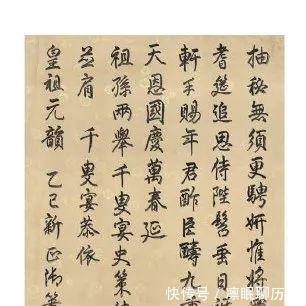 抽秘無須更騁妍惟將
耆筵追思侍陛髫垂日
軒年賜年君酢臣醻九
天恩國慶萬春延
祖孫兩舉千叟宴史策
並肩 千叟宴恭依
皇祖元韻 乙巳新正御筆
快传号/澳眠聊历